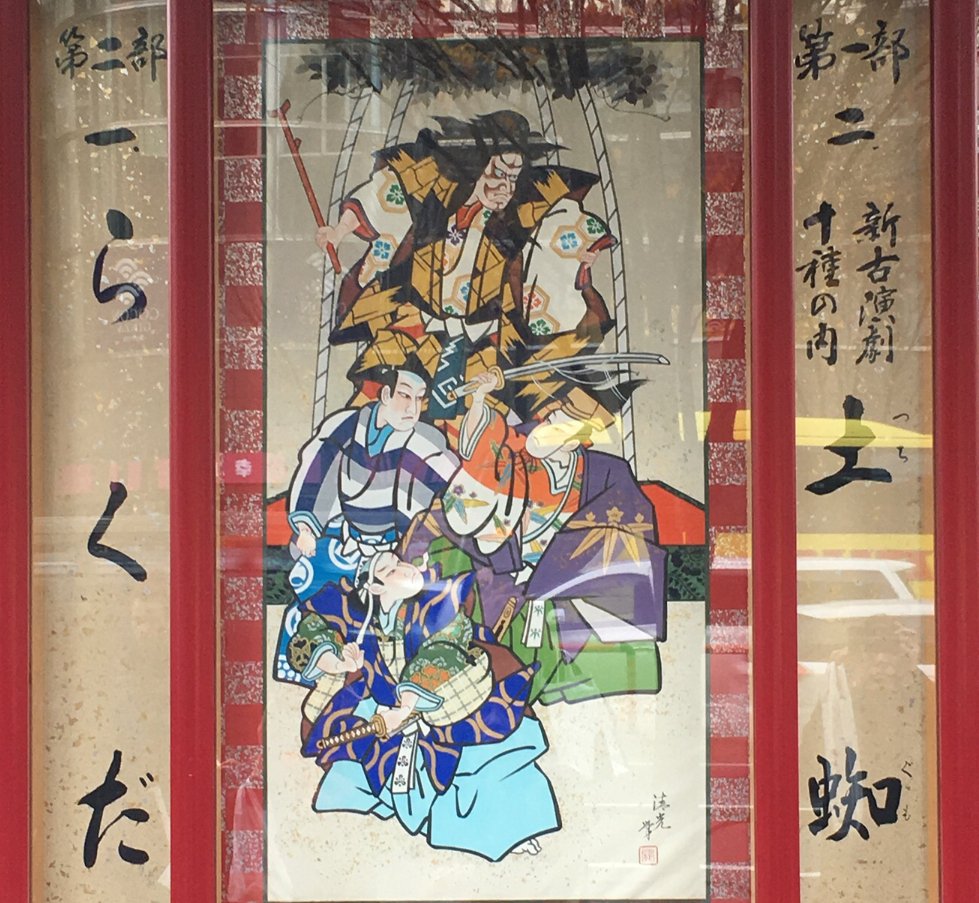 第一部
二、
新古演劇
十種の内
土蜘
つちぐも
第二部
一、
らくだ
清光